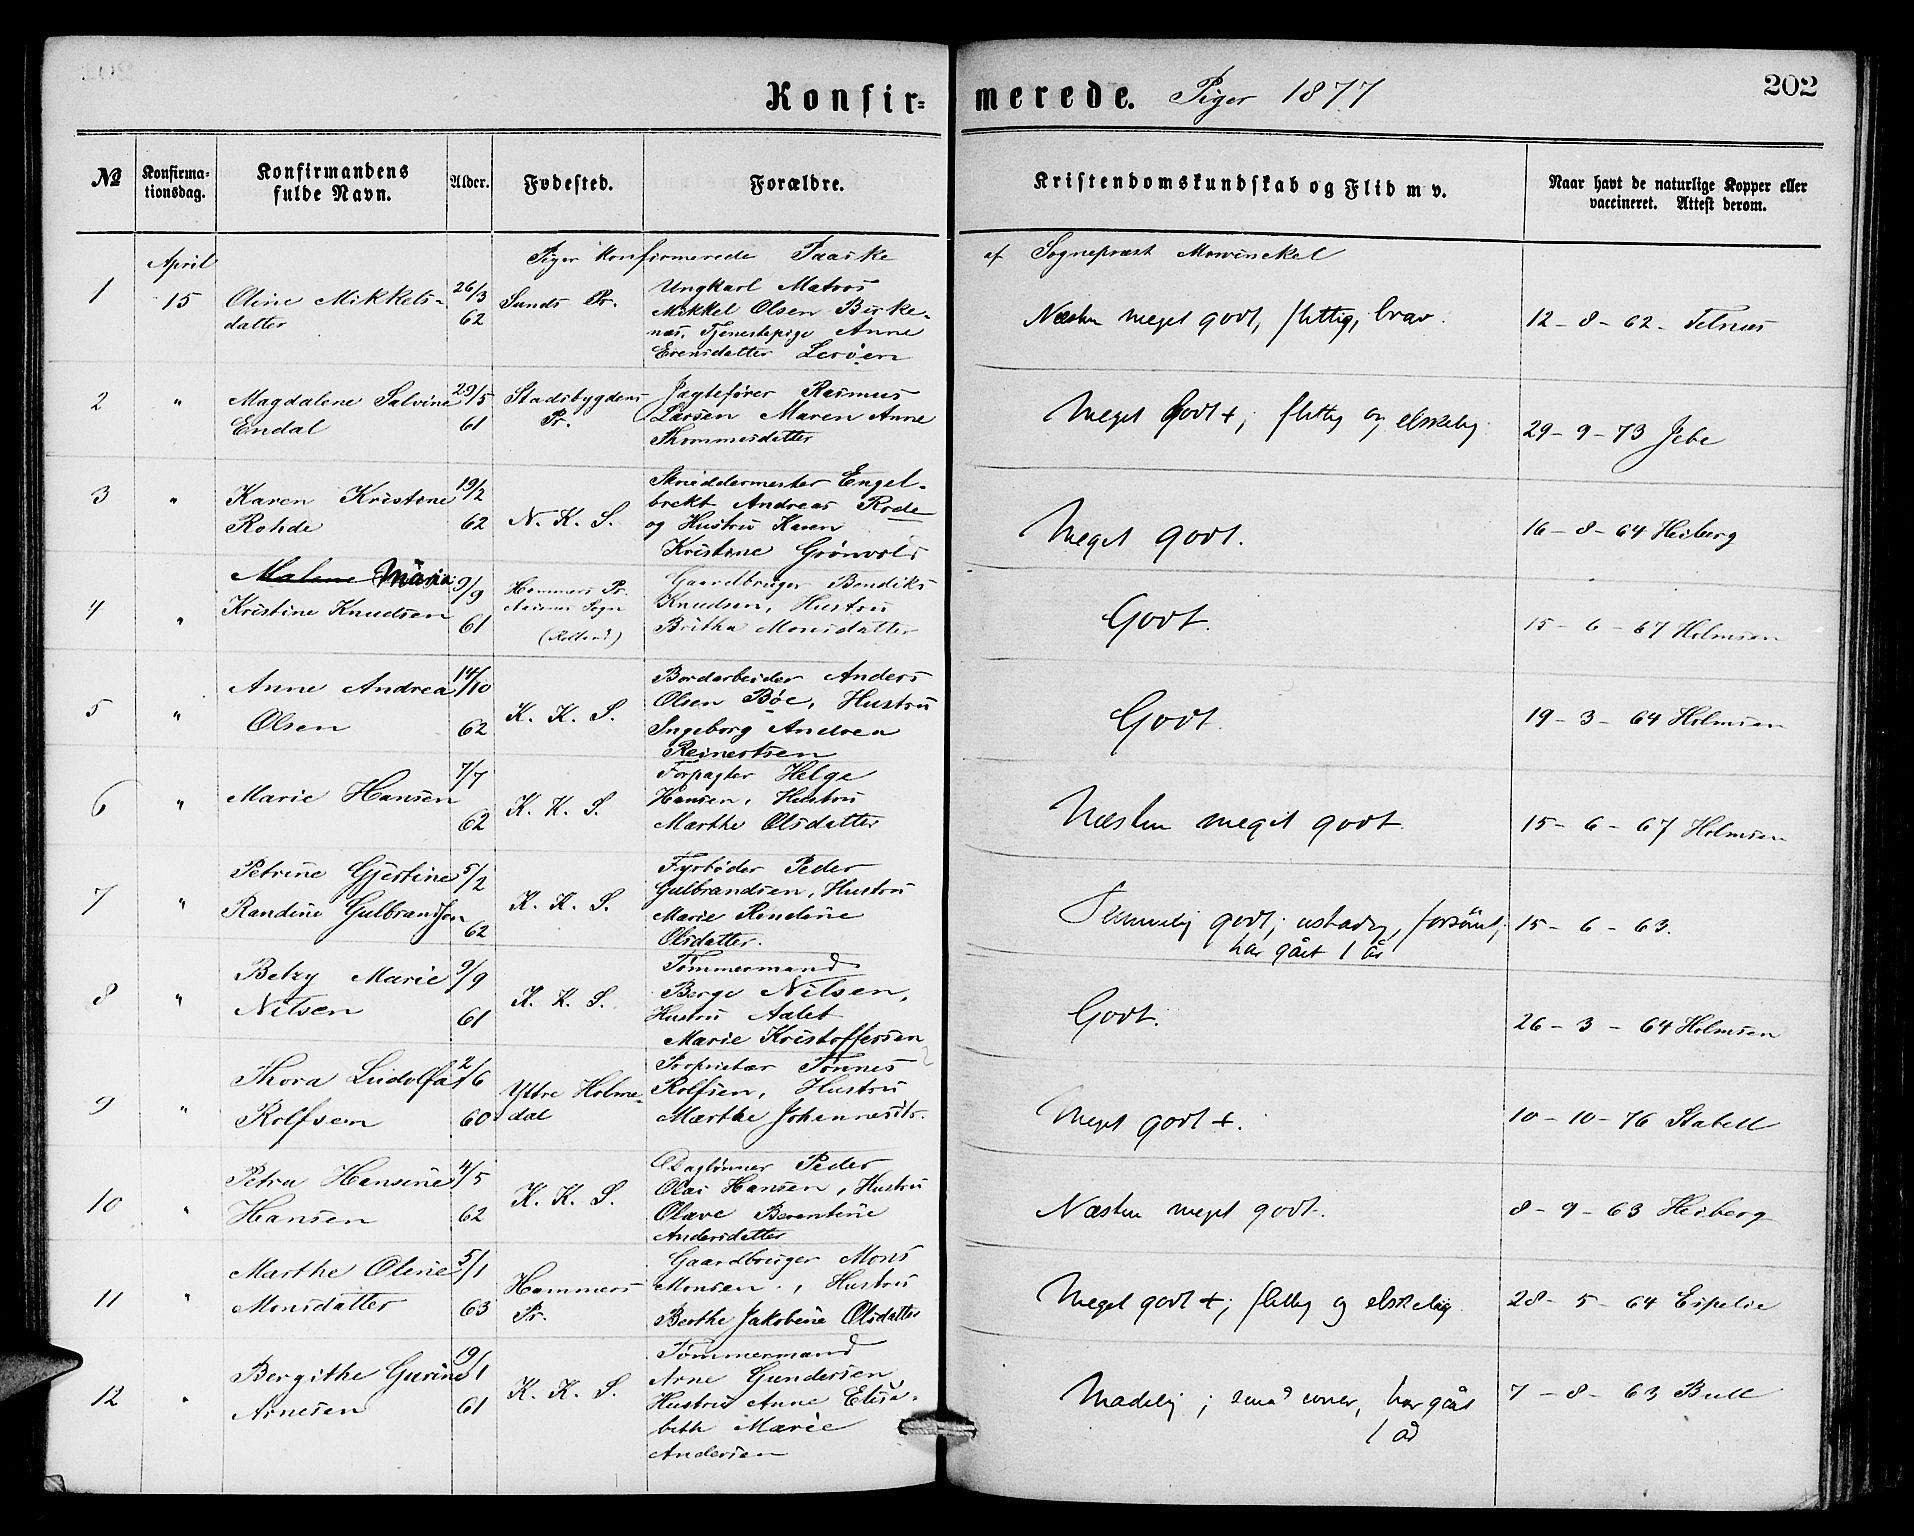 Konfir=
merede. Piger 1877
202
№
Konfirma-
tionsdag.
Konfirmandens
fulde Navn.
Alder.
Fødested.
Forældre.
Kristendomskundskab og Flid m v.
Naar havt de naturlige Kopper eller
vaccineret. Attest derom.
April
Piger konfirmerede Paaske
af Sognepræst Mowinckel
1
15
Oline Mikkels-
datter
26/3
62
Sunds Pr.
Ungkarl Matros
Mikkel Olsen Birke-
næs, Tjenestepige Anne
Evensdatter Lerøen
Næsten meget godt, flittig, brav.
12 - 8 - 62 - Telnæs
2
"
Magdalene Salvine
Endal
29/5
61
Stadsbygdens
Pr.
Jagtefører Rasmus
Larsen Maren Anne
Thommesdatter
Meget Godt +; flittig og elskelig
29 - 9 - 73 Jebe
3
"
Karen Kristine
Rohde
19/2
62
N. K. S.
Skræddermester Engel-
brekt Andreas Rode
og Hustru Karen
Kristine Grønvold
Meget godt.
16 - 8 - 64 Heiberg
4
"
Malene Maria
Kristine Knudsen
9/9
61
Hammers Pr.
Gaardbruger Bendiks
Knudsen, Hustru
Britha Monsdatter
Godt.
15 - 6 - 67 Holmsen
5
"
Anne Andrea
Olsen
14/10
62
K. K. S.
Bordarbeider Anders
Olsen Bøe, Hustru
Ingeborg Andrea
Reinertsen
Godt.
19 - 3 - 64 Holmsen
6
"
Marie Hansen
7/7
62
K. K. S.
Forpagter Helge
Hansen, Hustru
Marthe Olsdatter
Næsten meget godt.
15 - 6 - 67 Holmsen
7
"
Petrine Gjertine
Randine Gulbrandsen
5/2
62
K. K. S.
Fyrbøder Peder
Gulbrandsen, Hustru
Marie Rendine
Olsdatter.
Temmelig godt; ustadig, forsömt;
har gået 1 år
15 - 6 - 63.
8
"
Betzy Marie
Nilsen
9/9
61
K. K. S.
Tømmermand
Berge Nilsen,
Hustru Aalet
Marie Kristoffersen
Godt.
26 - 3 - 64 Holmsen
9
"
Thora Ludolfa
Rolfsen
2/6
60
Yttre Holme-
dal
Proprietær Tønnes
Rolfsen, Hustru
Marthe Johannesdtr.
Meget godt +.
10 - 10 - 76 Stabell
10
"
Petra Hansine
Hansen
4/5
62
K. K. S.
Dagtønner Peder
Olai Hansen, Hustru
Olave Berentine
Andersdatter
Næsten meget godt.
8 - 9 - 63 Heiberg
11
"
Marthe Oline
Monsdatter
5/1
63
Hammers
Pr.
Gaardbruger Mons
Monsen, Hustru
Berthe Jakobine Olsdatter
Meget godt +; flittig og elskelig
28 - 5 - 64 Espelie
12
"
Bergithe Gurine
Arnesen
19/1
61
K. K. S.
Tømmermand
Arne Gundersen,
Hustru Anne Elisa-
beth Marie
Andersen
Mådelig; små evner, har gået
1 år
7 - 8 - 63 Bull